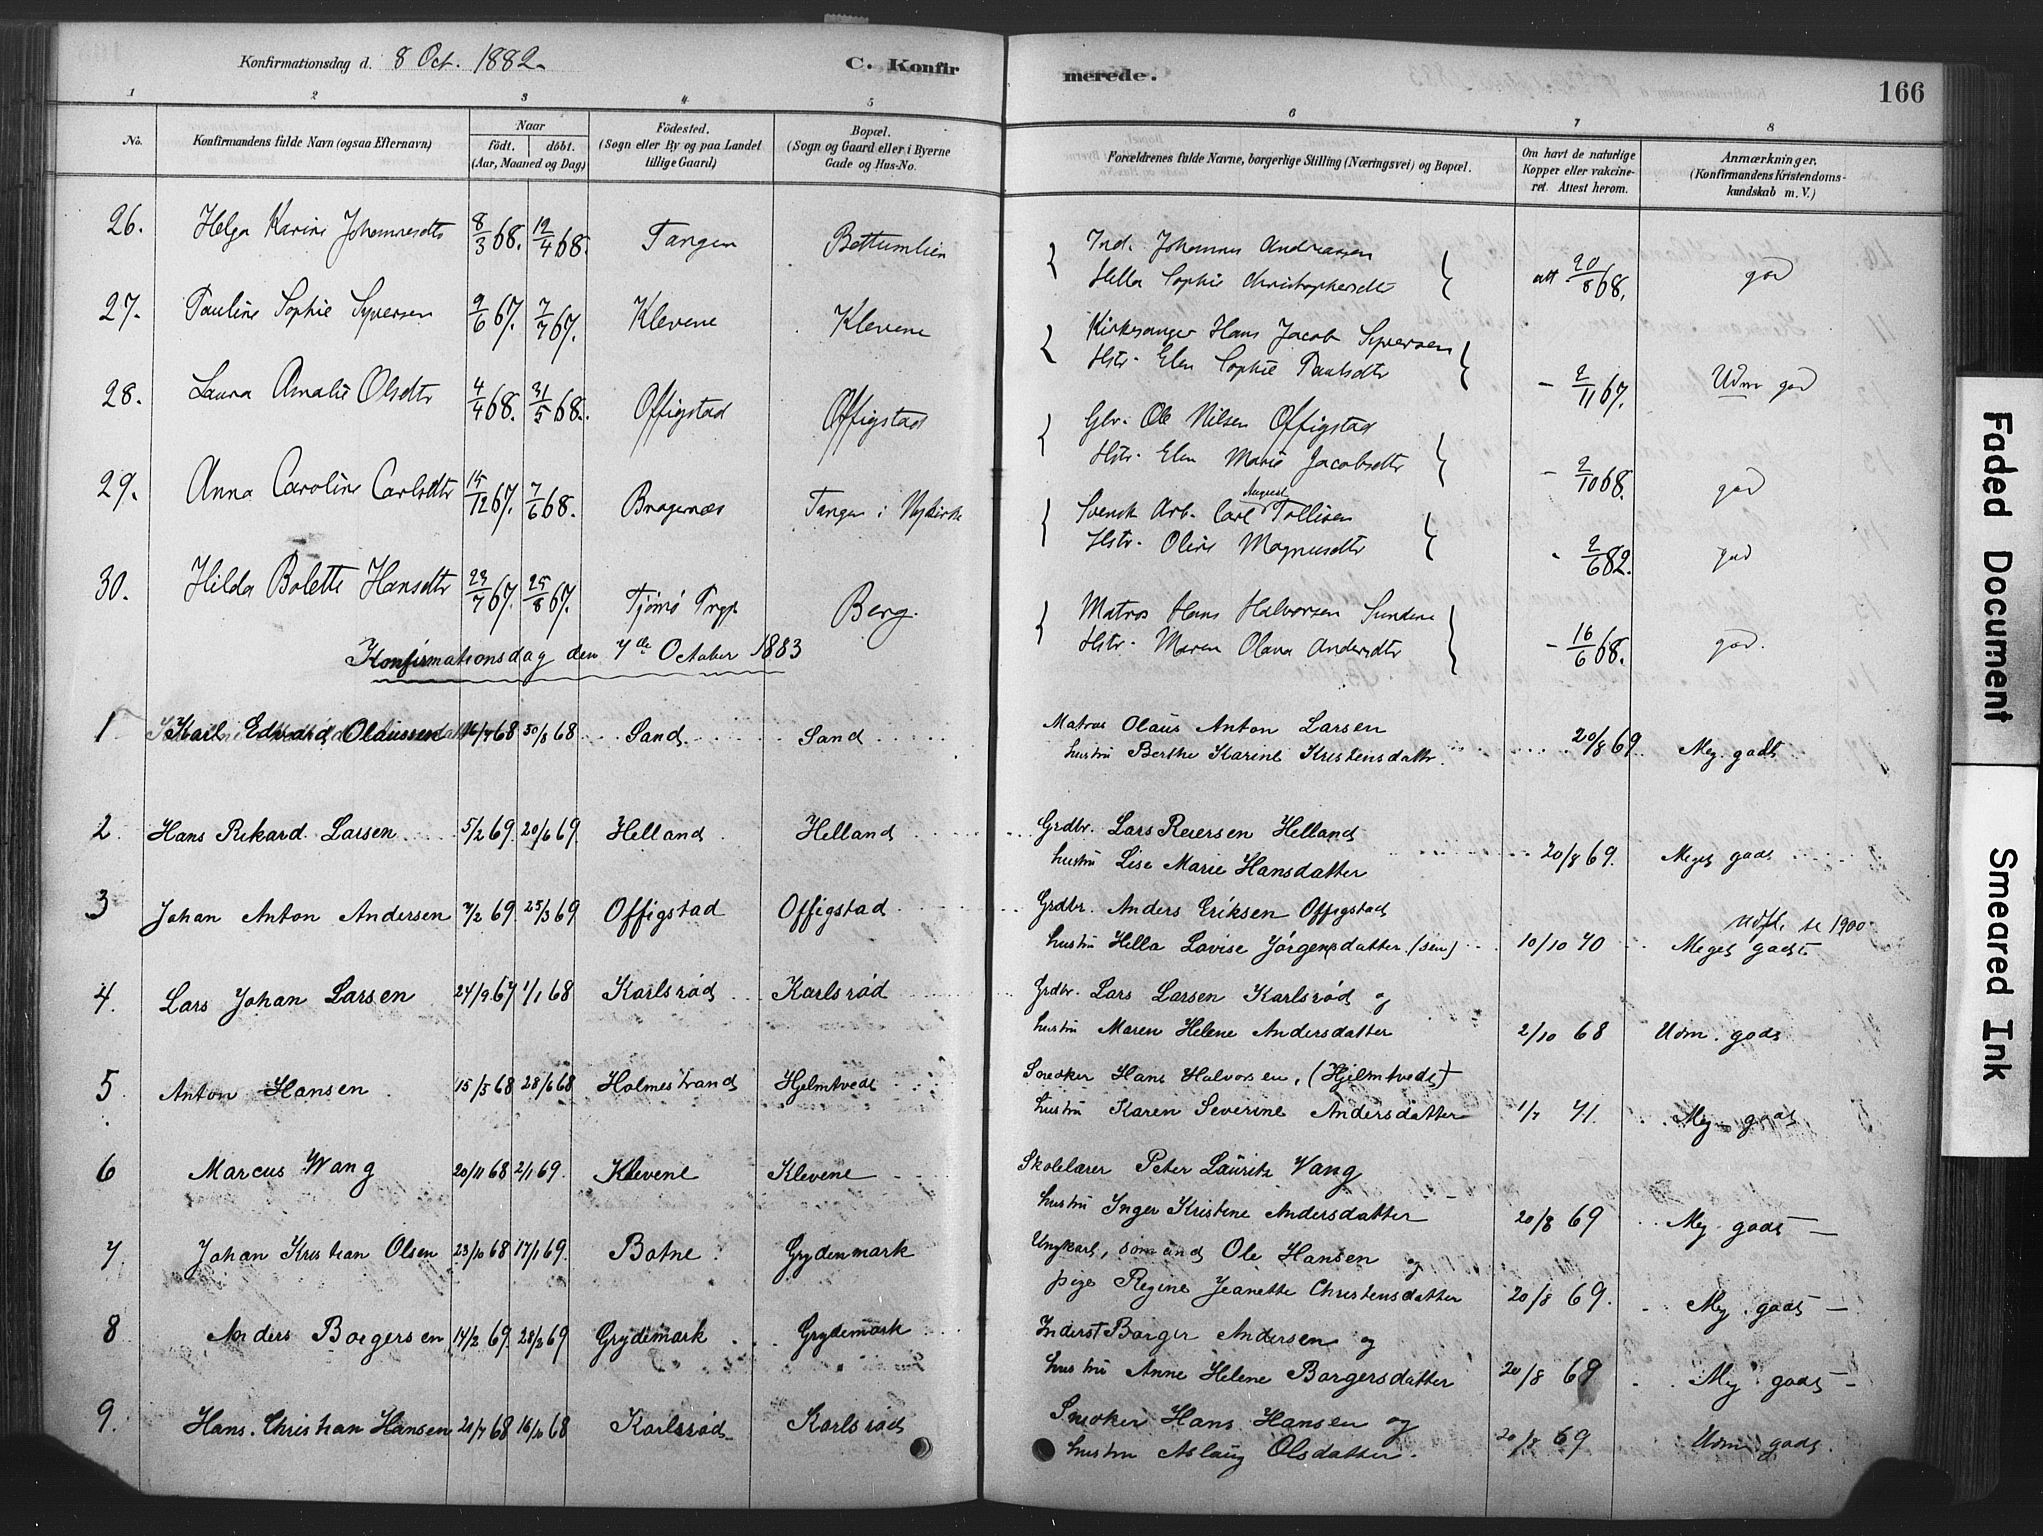 Konfirmationsdag d. 8 Oct. 1882. C. Konfirmerede. 166
1 2 3 4 5 6 7 8
No. Konfirmandens fulde Navn (ogsaa Efternavn) Naar födt. döbt. (Aar, Maaned og Dag) Födested. (Sogn eller By og paa Landet tillige Gaard) Bopæl. (Sogn og Gaard eller i Byerne Gade og Hus-No. Forældrenes fulde Navne, borgerlige Stilling (Næringsvei) og Bopæl. Om havt de naturlige Kopper eller vakcineret. Attest herom. Anmærkninger. (Konfirmandens Kristendomskundskab m. V.)
26. Helga Karine Johannesdtr 8/3 68. 12/4 68. Tangen Bettumlien Ind. Johannes Andreasen
Hella Sophie Christophersdtr att 20/8 68. god
27. Pauline Sophie Syversen 9/6 67. 7/7 67. Klevene Klevene Kirkesanger Hans Jacob Syversen
Hstr. Elen Sophie Paulsdtr - 2/11 67. Udm god
28. Laura Amalie Olsdtr 4/4 68. 31/5 68. Offigstad Offigstad Gbr. Ole Nilsen Offigstad
Hstr. Elen Marie Jacobsdtr - 2/10 68. god
29. Anna Caroline Carlsdtr 15/12 67. 7/6 68. Bragernæs Tangen i Nykirke Svensk Arb. Carl August Tollisen
Hstr. Oline Magnusdtr - 2/6 82. god
30. Hilda Bolette Hansdtr 23/7 67. 25/8 67. Tjömö Prgj. Berg. Matros Hans Halvorsen Sundene
Hstr. Maren Olava Andersdtr - 16/6 68. god.
Konfirmationsdag den 7de October 1883
1 Karl Edvard Olaussen 16/7 68 30/8 68 Sand Sand Matros Olaus Anton Larsen
hustru Berthe Karine Kristensdatter 20/8 69 Meg. godt
2. Hans Rikard Larsen 5/2 69. 20/6 69. Helland Helland Grdbr. Lars Reiersen Helland
hustru Lise Marie Hansdatter 20/8 69. Meget godt
3 Johan Anton Andersen 7/2 69. 25/3 69 Offigstad Offigstad Grdbr. Anders Eriksen Offigstad
hustru Hella Lovise Jörgensdatter (sen) 10/10 70 Meget godt Udfl. se 1900
4. Lars Johan Larsen 24/9 67 1/1 68 Karlsröd Karlsröd Grdbr. Lars Larsen Karlsröd og
hustru Maren Helene Andersdatter 2/10 68 Udm. godt
5 Anton Hansen 15/5 68 28/6 68 Holmestrand Hjelmtvedt Snedker Hans Halvorsen, (Hjelmtvedt)
hustru Karen Severine Andersdatter 1/7 71. Meg godt
6 Marcus Wang 20/11 68 2/1 69. Klevene Klevene Skolelærer Peter Lauritz Vang
hustru Inger Kristine Andersdatter 20/8 69 Meg. godt
7 Johan Kristian Olsen 23/10 68 17/1 69. Botne Grydenmark Ungkarl, sömand Ole Hansen og
pige Regine Jeanette Christensdatter 20/8 69. Meg. godt
8 Anders Borgersen 14/2 69. 28/2 69 Grydemork Grydemork Inderst Borger Andersen og
hustru Anne Helene Borgersdatter 20/8 69 Meg. godt
9. Hans Christian Hansen 21/7 68 16/10 68 Karlsröd Karlsröd Snedker Hans Hansen og
hustru Aslaug Olsdatter. 20/8 69 Udm godt.
Faded Document
Smeared Ink